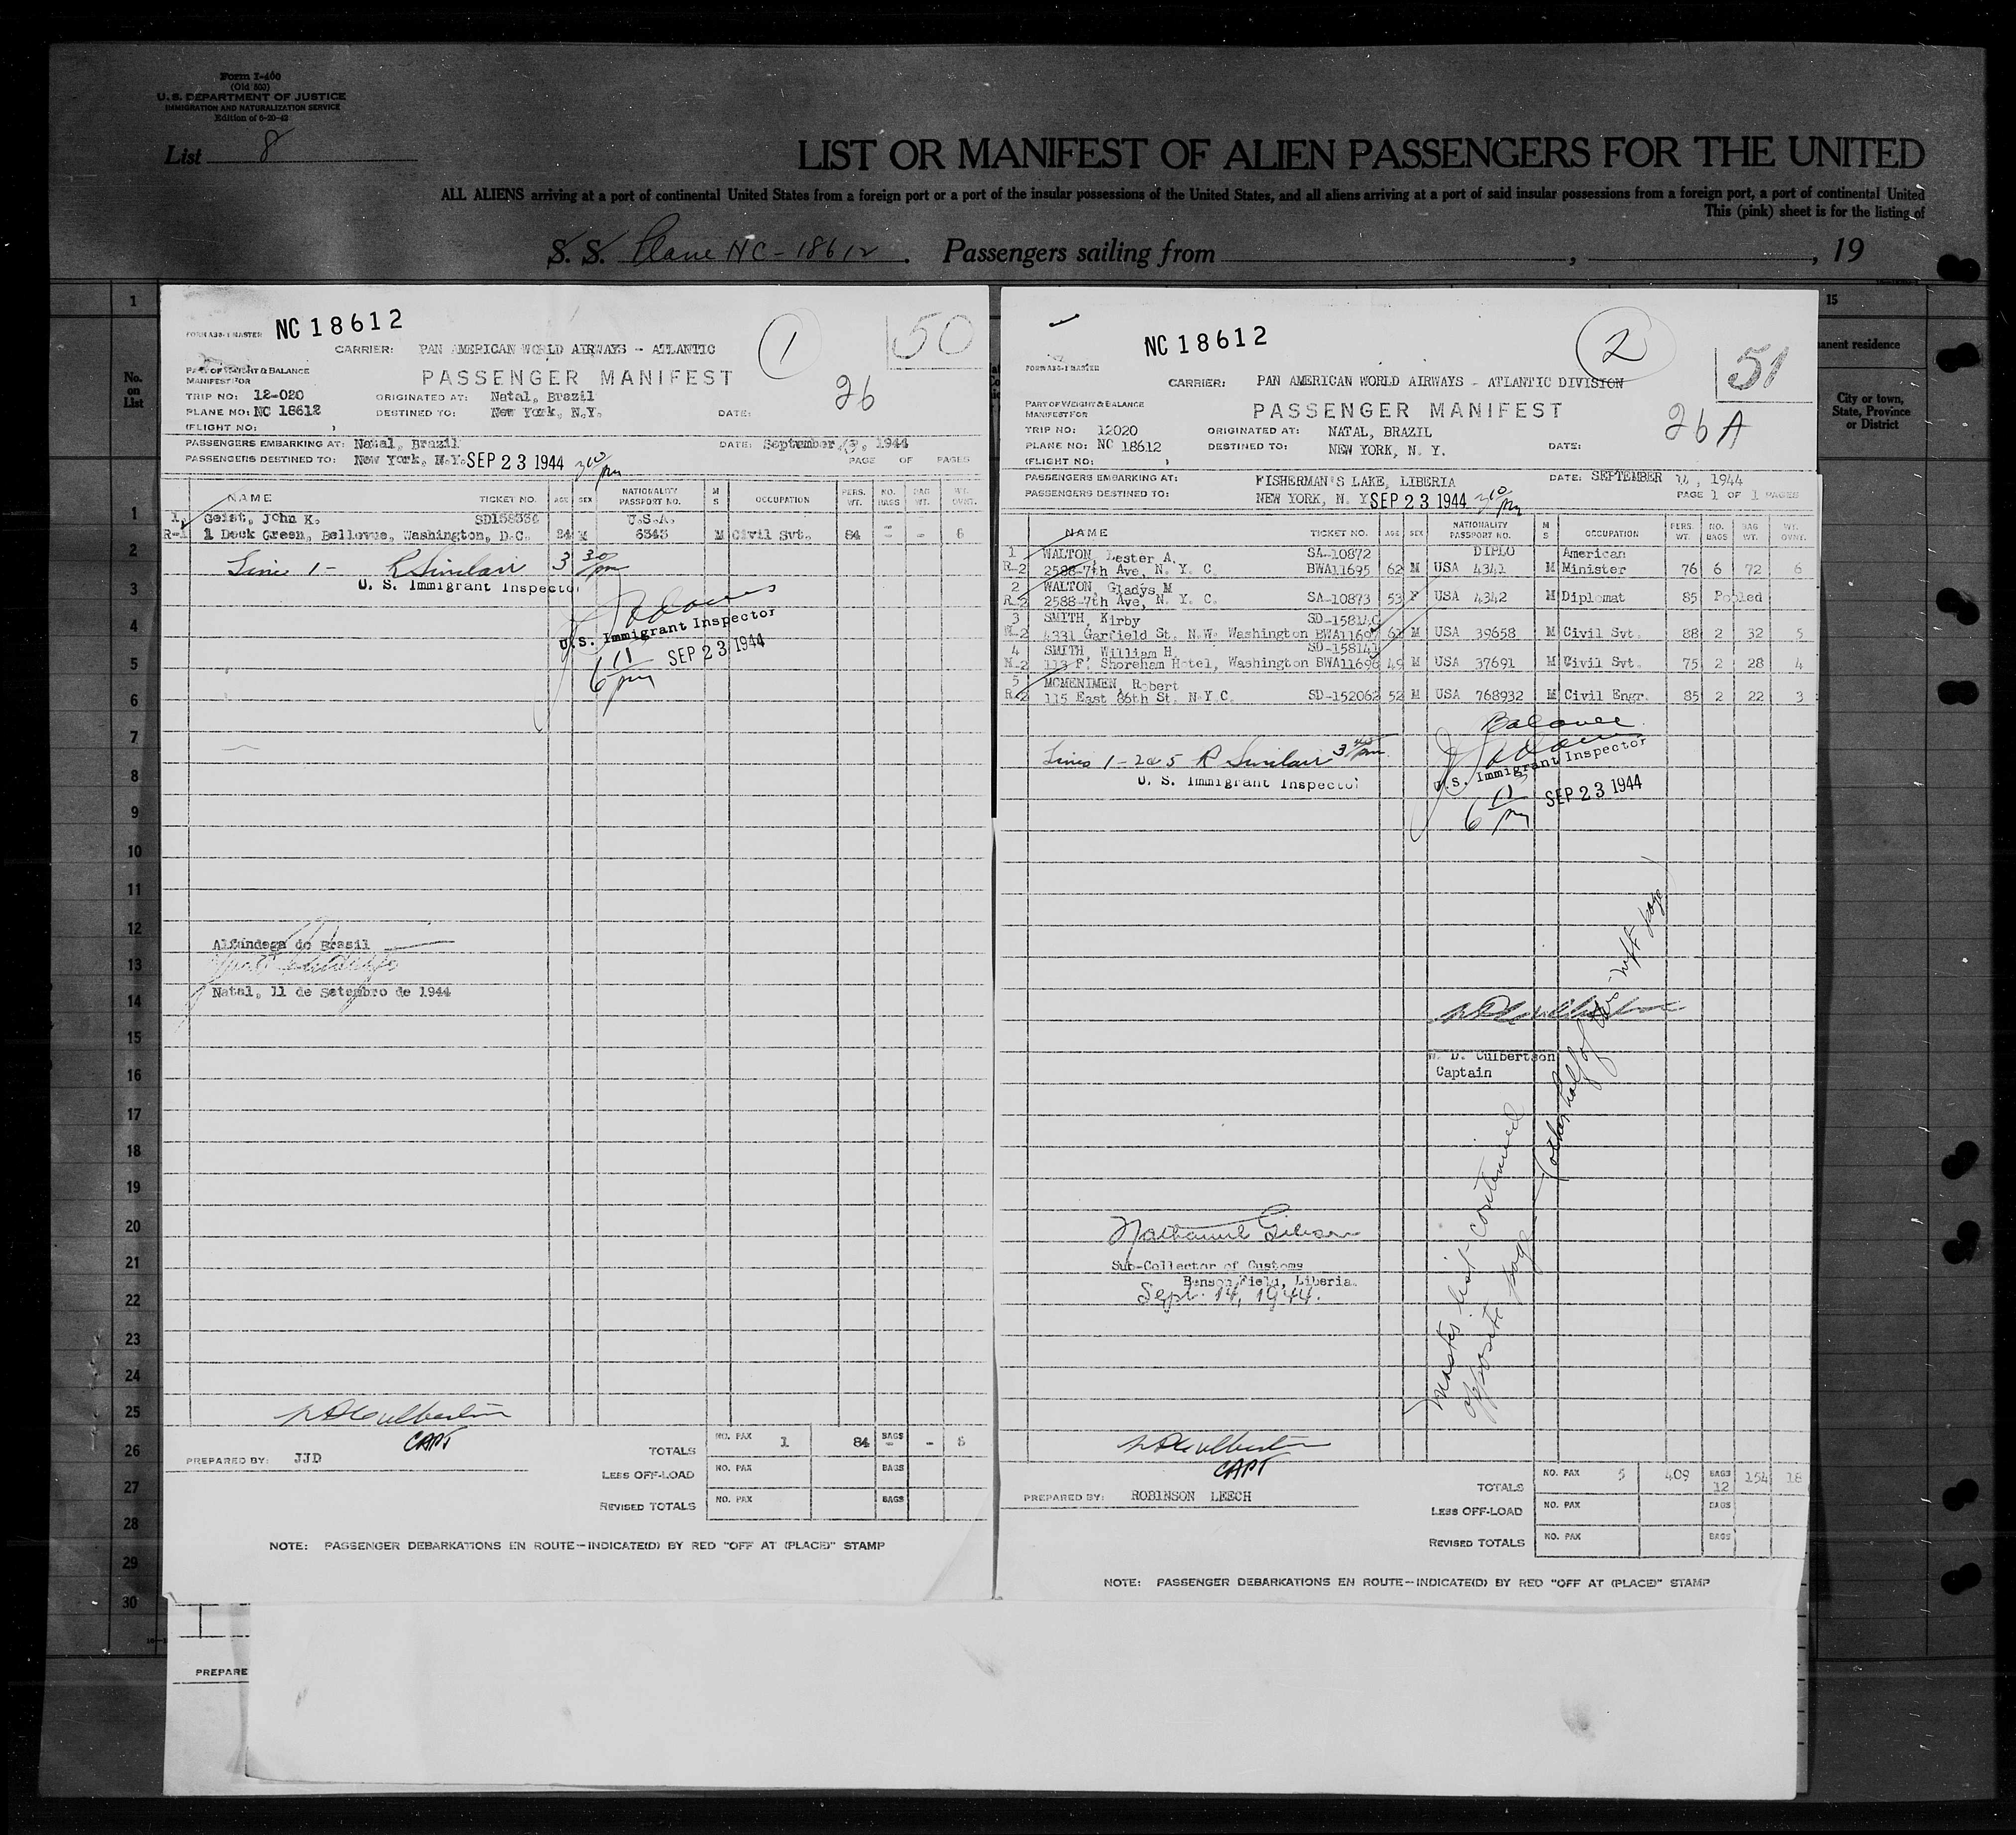 Form I-460
(Old 500)
U. S. DEPARTMENT OF JUSTICE
IMMIGRATION AND NATURALIZATION SERVICE
Edition of 6-20-42
List 8
LIST OR MANIFEST OF ALIEN PASSENGERS FOR THE UNITED
ALL ALIENS arriving at a port of continental United States from a foreign port or a port of the insular possessions of the United States, and all aliens arriving at a port of said insular possessions from a foreign port, a port of continental United
This (pink) sheet is for the listing of
S. S. Plane NC-18612. Passengers sailing from , , 19
1
No. on List
1
2
3
4
5
6
7
8
9
10
11
12
13
14
15
16
17
18
19
20
21
22
23
24
25
26
27
28
29
30
NC 18612
1
50
CARRIER: PAN AMERICAN WORLD AIRWAYS - ATLANTIC
PART OF WEIGHT & BALANCE
MANIFEST FOR
PASSENGER MANIFEST
26
TRIP NO: 12-020 ORIGINATED AT: Natal, Brazil
PLANE NO: NC 18612 DESTINED TO: New York, N.Y. DATE:
(FLIGHT NO: )
PASSENGERS EMBARKING AT: Natal, Brazil DATE: September 1944
PASSENGERS DESTINED TO: New York, N.Y. SEP 23 1944 3 10/pm PAGE OF PAGES
NAME TICKET NO. AGE SEX NATIONALITY PASSPORT NO. M S OCCUPATION PERS. WT. NO. BAGS BAG WT. WT. OVNT.
1. Geist, John K. SD158334 U.S.A.
R-1 1 Dock Green, Bellevue, Washington, D.C. 24 M 6343 M Civil Svt. 84 - - 6
Line 1 - R Sinclair 3 30/pm
U. S. Immigrant Inspector
U.S. Immigrant Inspector
6 11/pm SEP 23 1944
Alfândega do Brasil
Natal, 11 de Setembro de 1944
W D Culbertson
CAPT
PREPARED BY: JJD
TOTALS NO. PAX 1 84 BAGS - - 6
LESS OFF-LOAD NO. PAX BAGS
REVISED TOTALS NO. PAX BAGS
NOTE: PASSENGER DEBARKATIONS EN ROUTE-INDICATE(D) BY RED "OFF AT (PLACE)" STAMP
PREPARE
NC 18612
2
51
CARRIER: PAN AMERICAN WORLD AIRWAYS - ATLANTIC DIVISION
PART OF WEIGHT & BALANCE
MANIFEST FOR
PASSENGER MANIFEST
26A
TRIP NO: 12020 ORIGINATED AT: NATAL, BRAZIL
PLANE NO: NC 18612 DESTINED TO: NEW YORK, N. Y. DATE:
(FLIGHT NO: )
PASSENGERS EMBARKING AT: FISHERMAN'S LAKE, LIBERIA DATE: SEPTEMBER 14, 1944
PASSENGERS DESTINED TO: NEW YORK, N. Y. SEP 23 1944 3 10/pm PAGE 1 OF 1 PAGES
NAME TICKET NO. AGE SEX NATIONALITY PASSPORT NO. M S OCCUPATION PERS. WT. NO. BAGS BAG WT. WT. OVNT.
1 WALTON, Lester A. SA-10872 DIPLO American
R-2 2588-7th Ave, N. Y. C. BWA11695 62 M USA 4341 M Minister 76 6 72 6
2 WALTON, Gladys M
R-2 2588-7th Ave, N. Y. C. SA-10873 53 F USA 4342 M Diplomat 85 Pooled
3 SMITH, Kirby SD-158140
R-2 4331 Garfield St. N.W. Washington BWA11697 61 M USA 39658 M Civil Svt. 88 2 32 5
4 SMITH William H. SD-158141
R-2 113 F. Shoreham Hotel, Washington BWA11696 49 M USA 37691 M Civil Svt. 75 2 28 4
5 MCMENIMEN, Robert
R-2 115 East 86th St. N.Y.C. SD-152062 52 M USA 768932 M Civil Engr. 85 2 22 3
Balance
Lines 1-2 & 5 R Sinclair 3 40/pm
U. S. Immigrant Inspector
U.S. Immigrant Inspector
6 11/pm SEP 23 1944
W. D. Culbertson
Captain
Master list continued
opposite page
(other half of this left page)
Nathaniel Gibson
Sub-Collector of Customs
Benson Field, Liberia.
Sept. 14, 1944.
W D Culbertson
CAPT
PREPARED BY: ROBINSON LEECH
TOTALS NO. PAX 5 409 BAGS 12 154 18
LESS OFF-LOAD NO. PAX BAGS
REVISED TOTALS NO. PAX BAGS
NOTE: PASSENGER DEBARKATIONS EN ROUTE-INDICATE(D) BY RED "OFF AT (PLACE)" STAMP
15
anent residence
City or town,
State, Province
or District